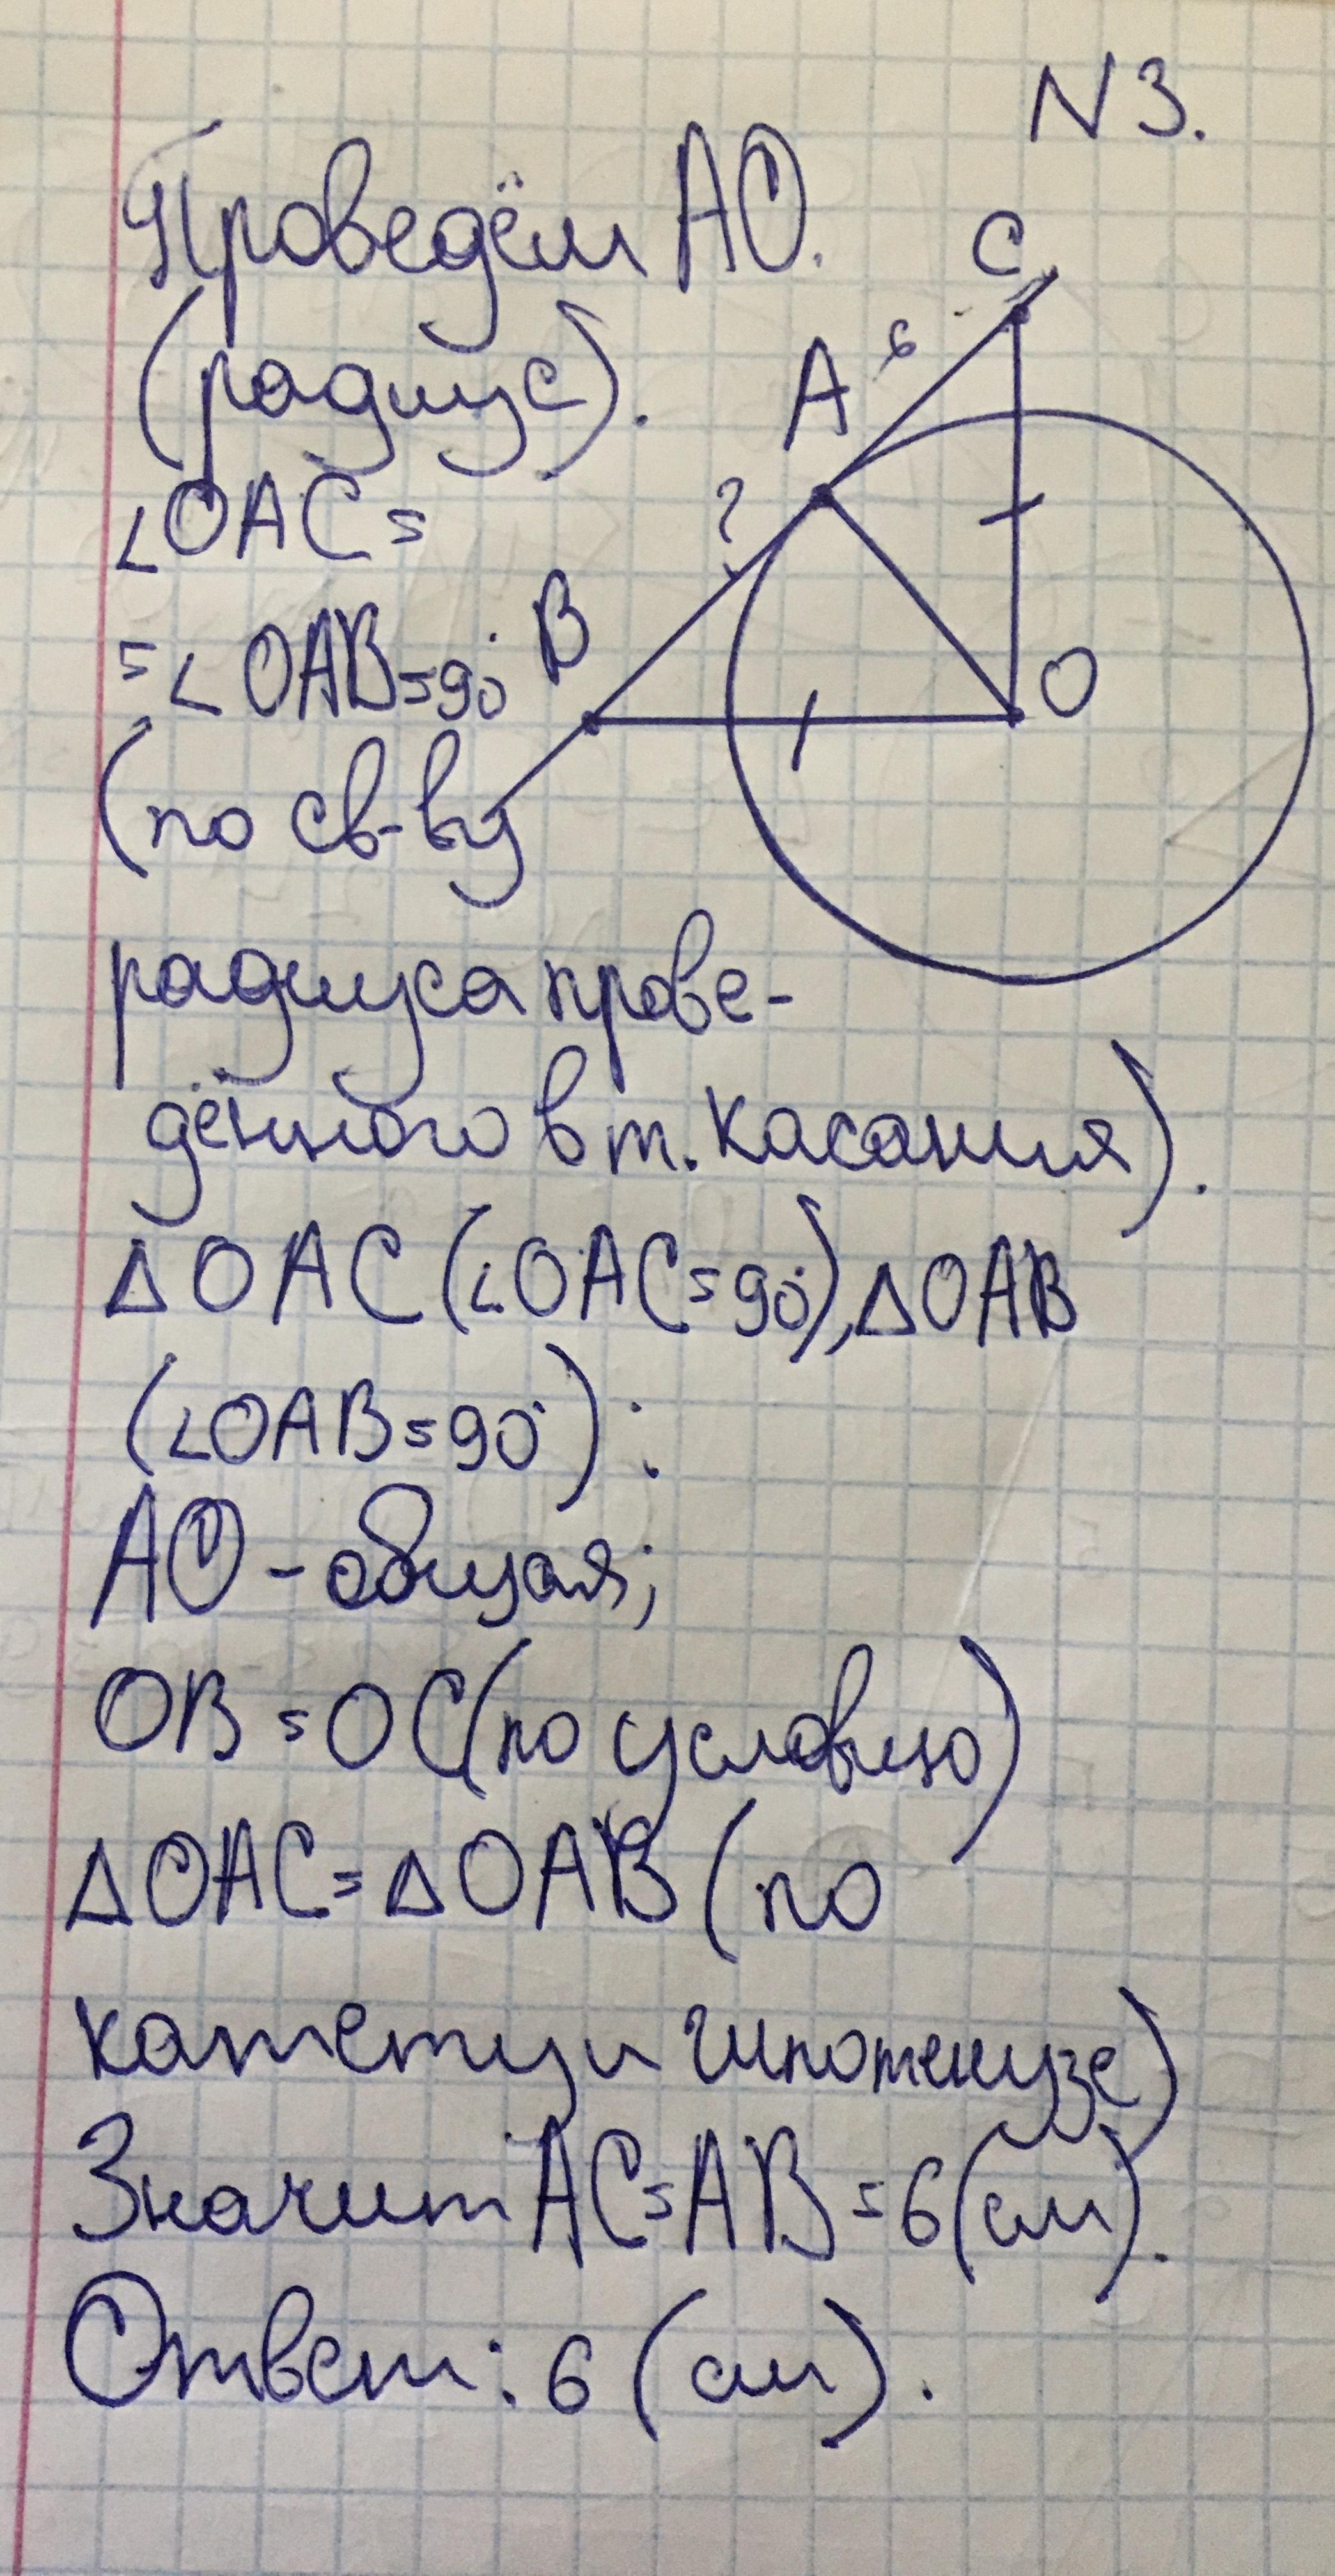 N3.
Проведём AO.
(радиус).
∠OAC =
= ∠OAB=90°
(по св-ву
радиуса прове-
дённого в т. касания).
△OAC (∠OAC=90°), △OAB
(∠OAB=90°):
AO - общая;
OB = OC (по условию)
△OAC = △OAB (по
катету и гипотенузе)
Значит AC=AB=6(см).
Ответ: 6 (см).
C
6
A
?
B
O